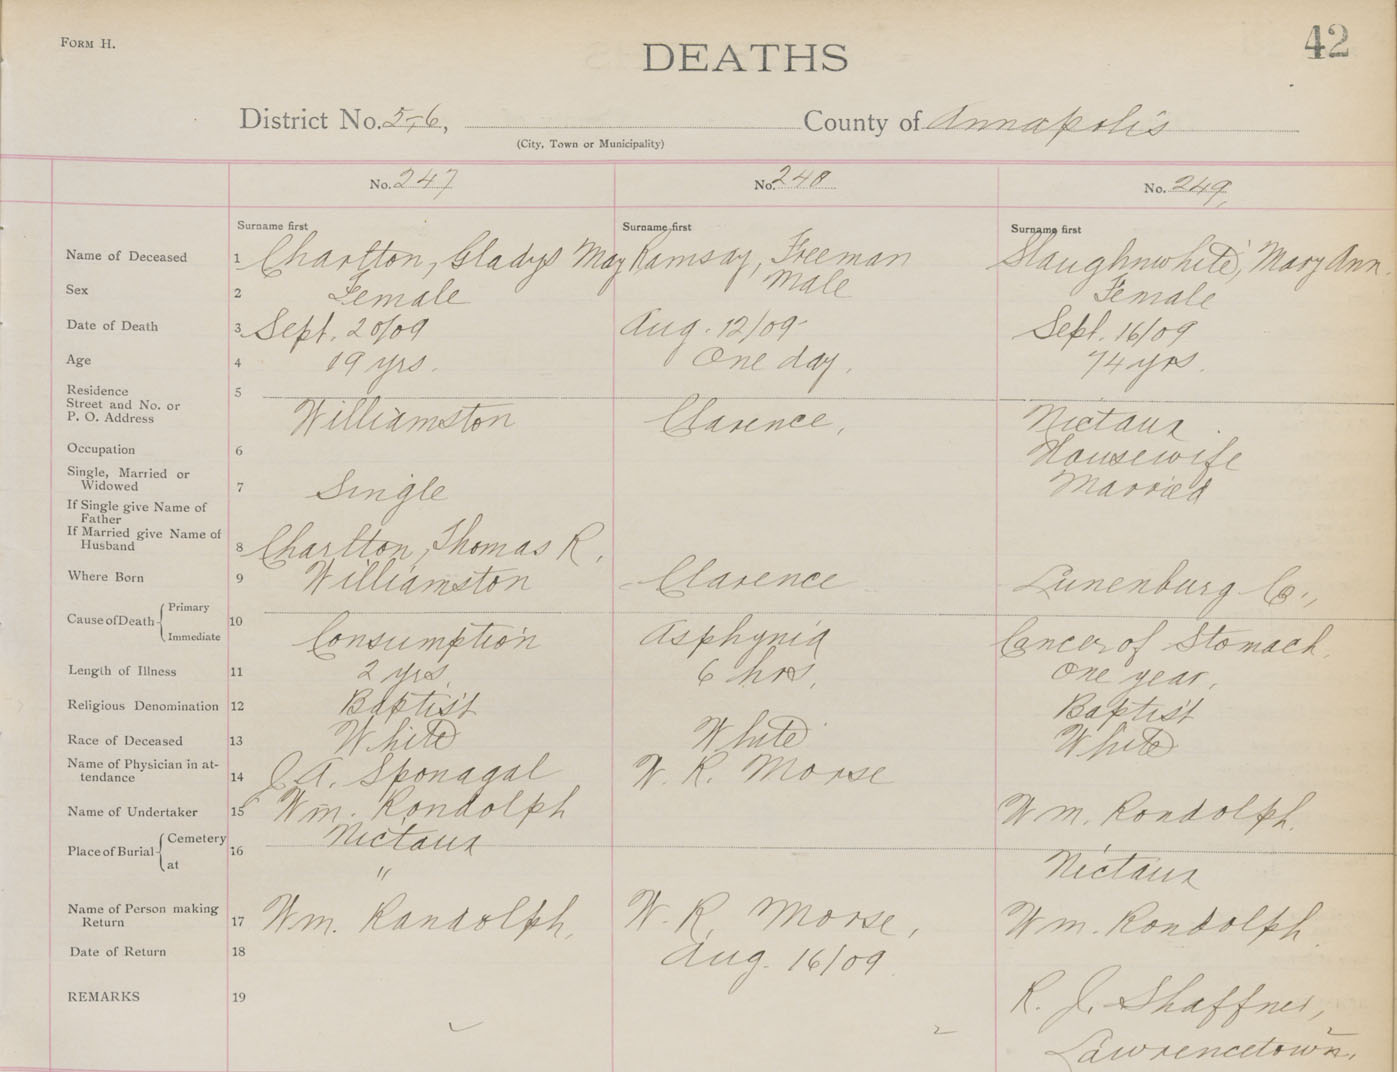 FORM H.
42
DEATHS
District No. 5-6, County of Annapolis
(City, Town or Municipality)
No. 247 No. 248 No. 249
Surname first Surname first Surname first
Name of Deceased 1 Charlton, Gladys May Ramsay, Freeman Slaughnwhite, Mary Ann.
Sex 2 Female Male Female
Date of Death 3 Sept. 20/09 Aug. 12/09 Sept. 16/09
Age 4 19 yrs. One day. 74 yrs.
Residence 5
Street and No. or
P. O. Address Williamston Clarence, Nictaux
Occupation 6 Housewife
Single, Married or
Widowed 7 Single Married
If Single give Name of
Father
If Married give Name of
Husband 8 Charlton, Thomas R.
Where Born 9 Williamston Clarence Lunenburg Co.,
Cause of Death Primary 10
Immediate Consumption Asphynia Cancer of Stomach.
Length of Illness 11 2 yrs. 6 hrs. One year.
Religious Denomination 12 Baptist Baptist
Race of Deceased 13 White White White
Name of Physician in at-
tendance 14 J. A. Sponagal W. R. Morse
Name of Undertaker 15 Wm. Rondolph Wm. Rondolph.
Place of Burial Cemetery 16 Nictaux
at " Nictaux
Name of Person making
Return 17 Wm. Randolph, W. R. Morse, Wm. Rondolph.
Date of Return 18 Aug. 16/09
REMARKS 19 R. J. Shaffner,
Lawrencetown.